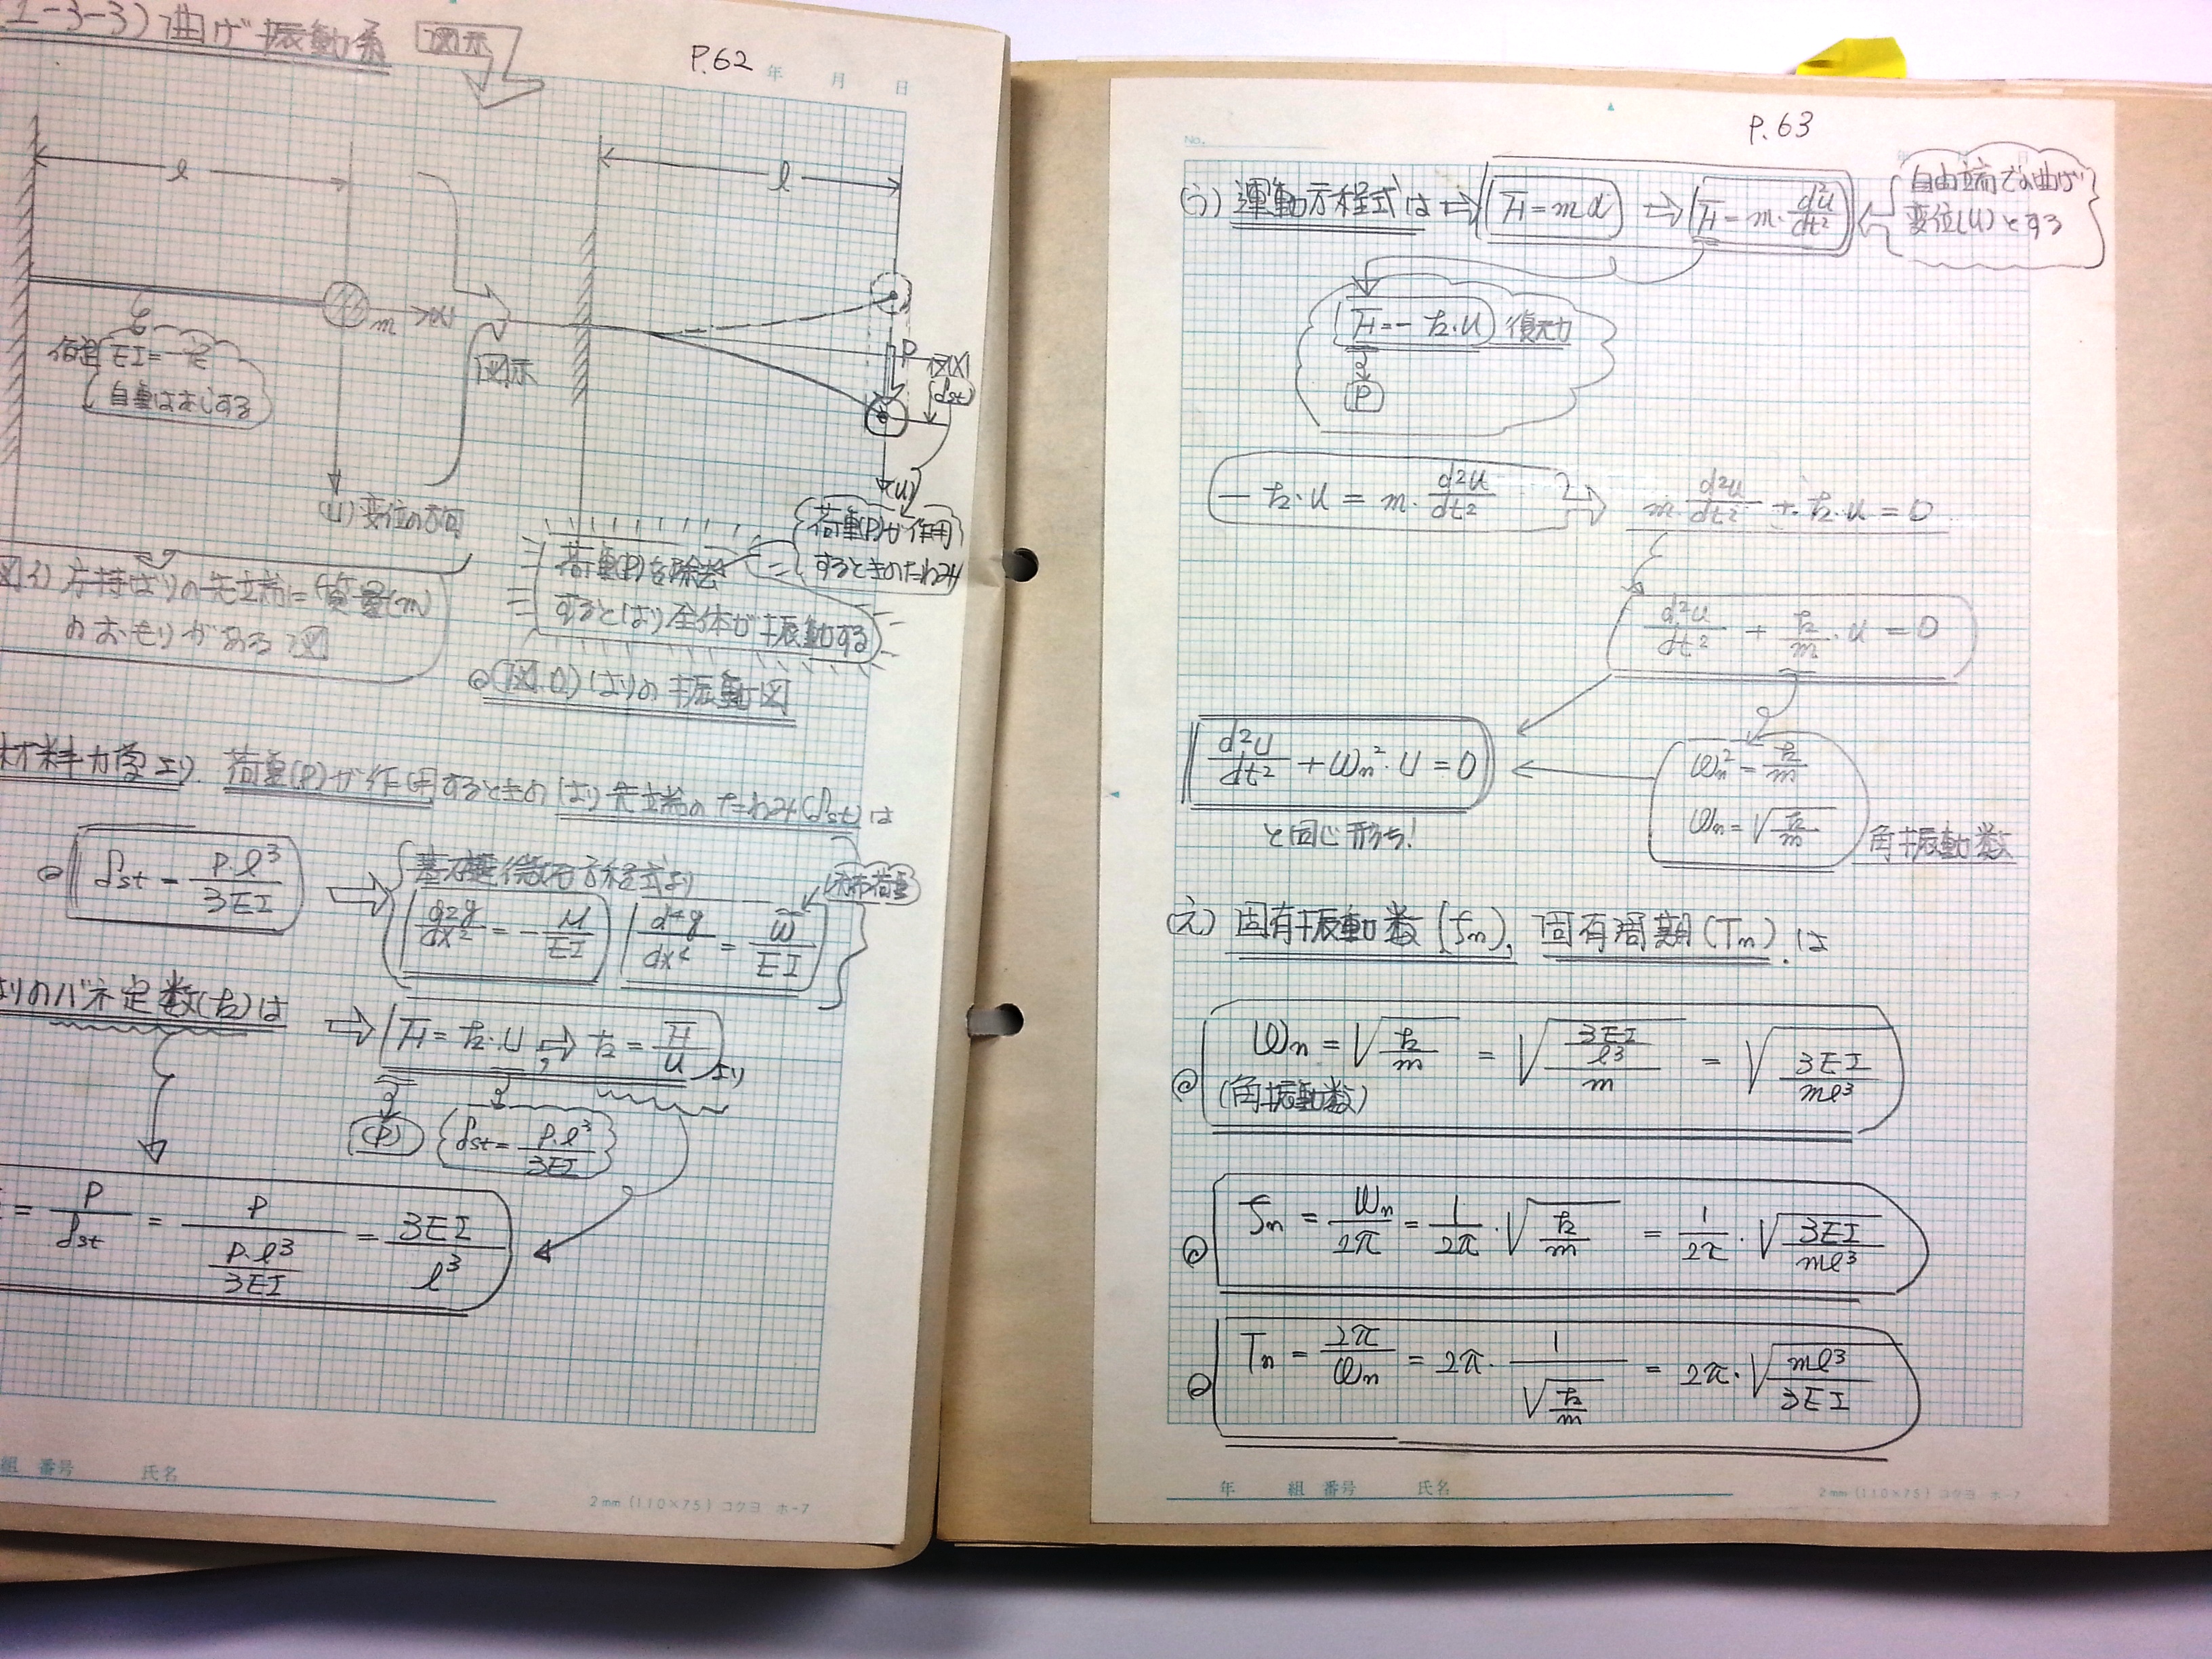 1-3-3) 曲げ振動系 図示
P.62 年 月 日
l
l
m
仮定 EI=一定
自重はなしする
図示
P
(δst)
(u) 変位の方向
(u)
荷重(P)が作用
するときのたわみ
荷重(P)を除去
するとはり全体が振動する
片持ばりの先端に質量(m)
のおもりがある図
はりの振動図
材料力学より. 荷重(P)が作用するときのはり先端のたわみ(δst)は
δst = P・l³/3EI ⇒ 基礎微分方程式より
d²y/dx² = -M/EI d⁴y/dx⁴ = w/EI
分布荷重
はりのバネ定数(k)は ⇒ F=k・u ⇒ k=F/u より
(P) δst = P・l³/3EI
= P/δst = P/(P・l³/3EI) = 3EI/l³
組 番号 氏名
2mm (110×75) コクヨ ホ-7
No.
P.63
(う) 運動方程式は ⇒ F=mα ⇒ F=m・d²u/dt²
自由端での曲げ
変位(u)とする
F=-k・u 復元力
P
-k・u = m・d²u/dt² ⇒ m・d²u/dt² + k・u = 0
d²u/dt² + k/m・u = 0
d²u/dt² + ωn²・u = 0
ωn² = k/m
ωn = √(k/m) 角振動数
と同じ形ち!
(え) 固有振動数(fn), 固有周期(Tn).は
ωn = √(k/m) = √((3EI/l³)/m) = √(3EI/ml³)
(角振動数)
fn = ωn/2π = 1/2π・√(k/m) = 1/2π・√(3EI/ml³)
Tn = 2π/ωn = 2π・1/√(k/m) = 2π・√(ml³/3EI)
年 組 番号 氏名
2mm (110×75) コクヨ ホ-7